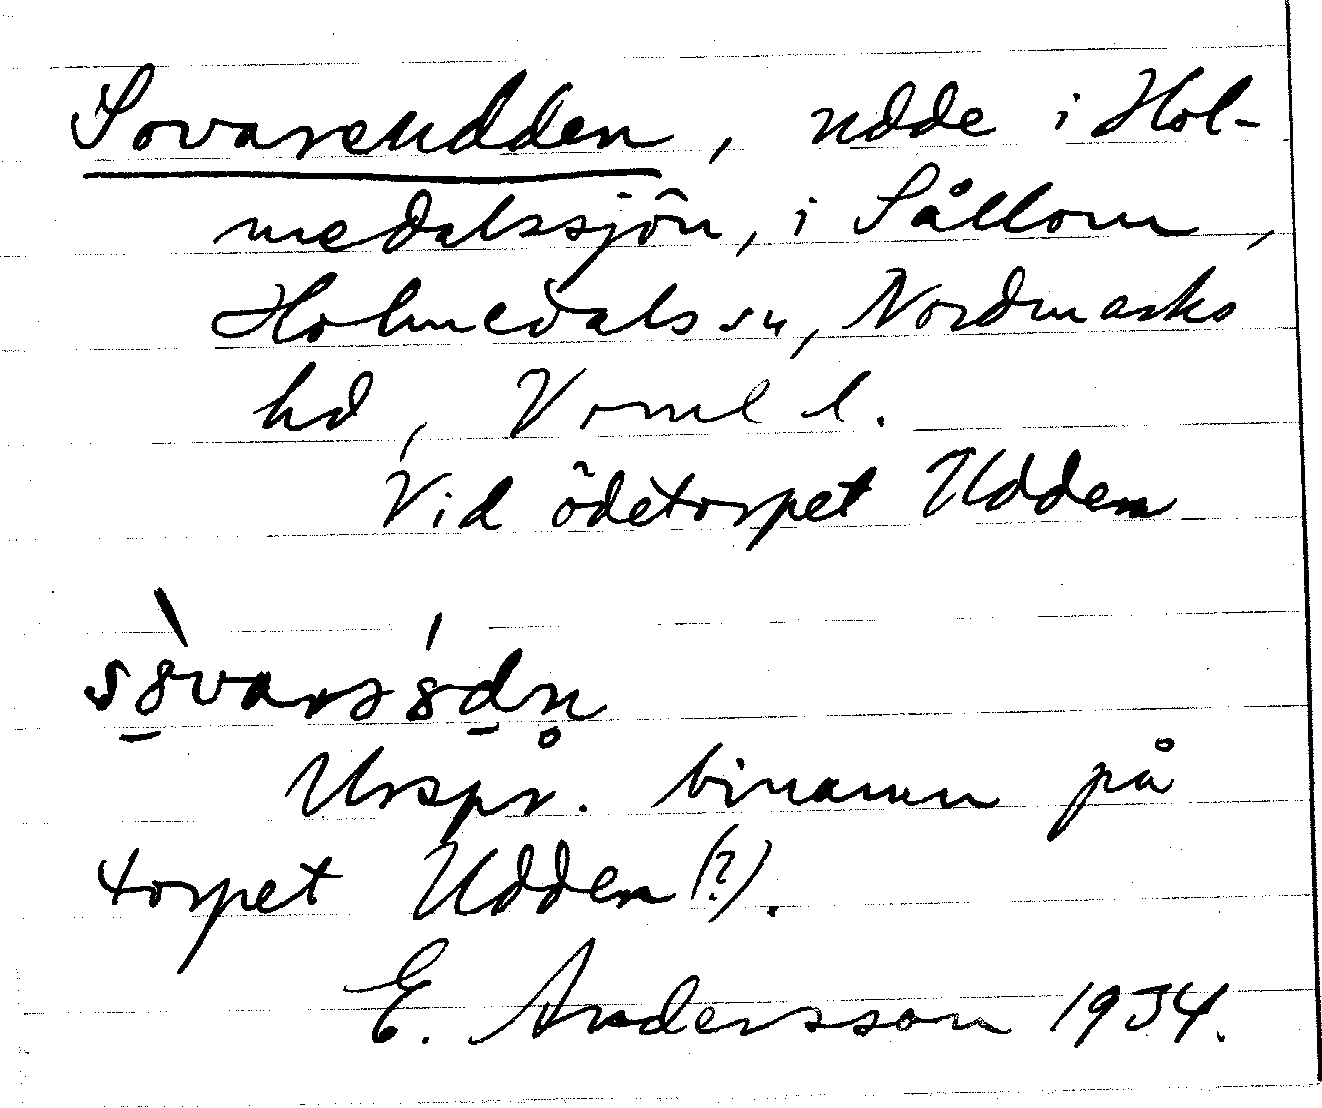 Sovareudden, udde i Hol-
medalssjön, i Sållom,
Holmedals sn, Nordmarks
hd, Vrml l.
Vid ödetorpet Udden
Urspr. binamn på
torpet Udden (?).
E. Andersson 1934.